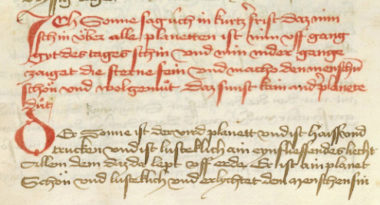 Ich Sonne sag üch in kurtzer frist daz min
schin über alle planetten ist min uff gang
gyt des tages schin und min nider gang
zaiget die sterne fin und mach den menschen
schön und wolgemut daz sunst kain andr planete
dut
Der Sonne ist der vird planett und ist haiss und
trucken und ist lustelich ain emsliessendes liecht
allem dem daz da lept uff erda Er ist ain planet
Schön und lustelich und erlychtet den menschen sin